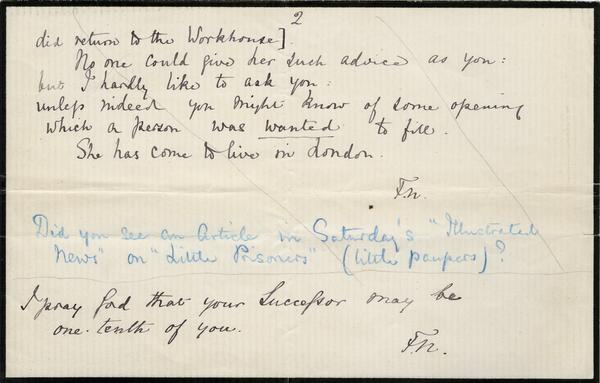 2
did return to the Workhouse].
No one could give her such advice as you:
but I hardly like to ask you:
unless indeed you might know of some opening
which a person was wanted to fill.
She has come to live in London.
F.N.
Did you see an Article in Saturday's "Illustrated
News" on "Little Prisoners" (little paupers)?
I pray God that your Successor may be
one-tenth of you.
F.N.